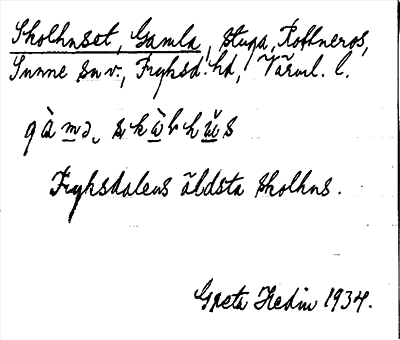 Skolhuset, Gamla, stuga, Rottneros,
Sunne sn v., Fryksd. hd, Värml. l.
gàmə, skàlhùs
Fryksdalens äldsta skolhus.
Greta Hedin 1934.